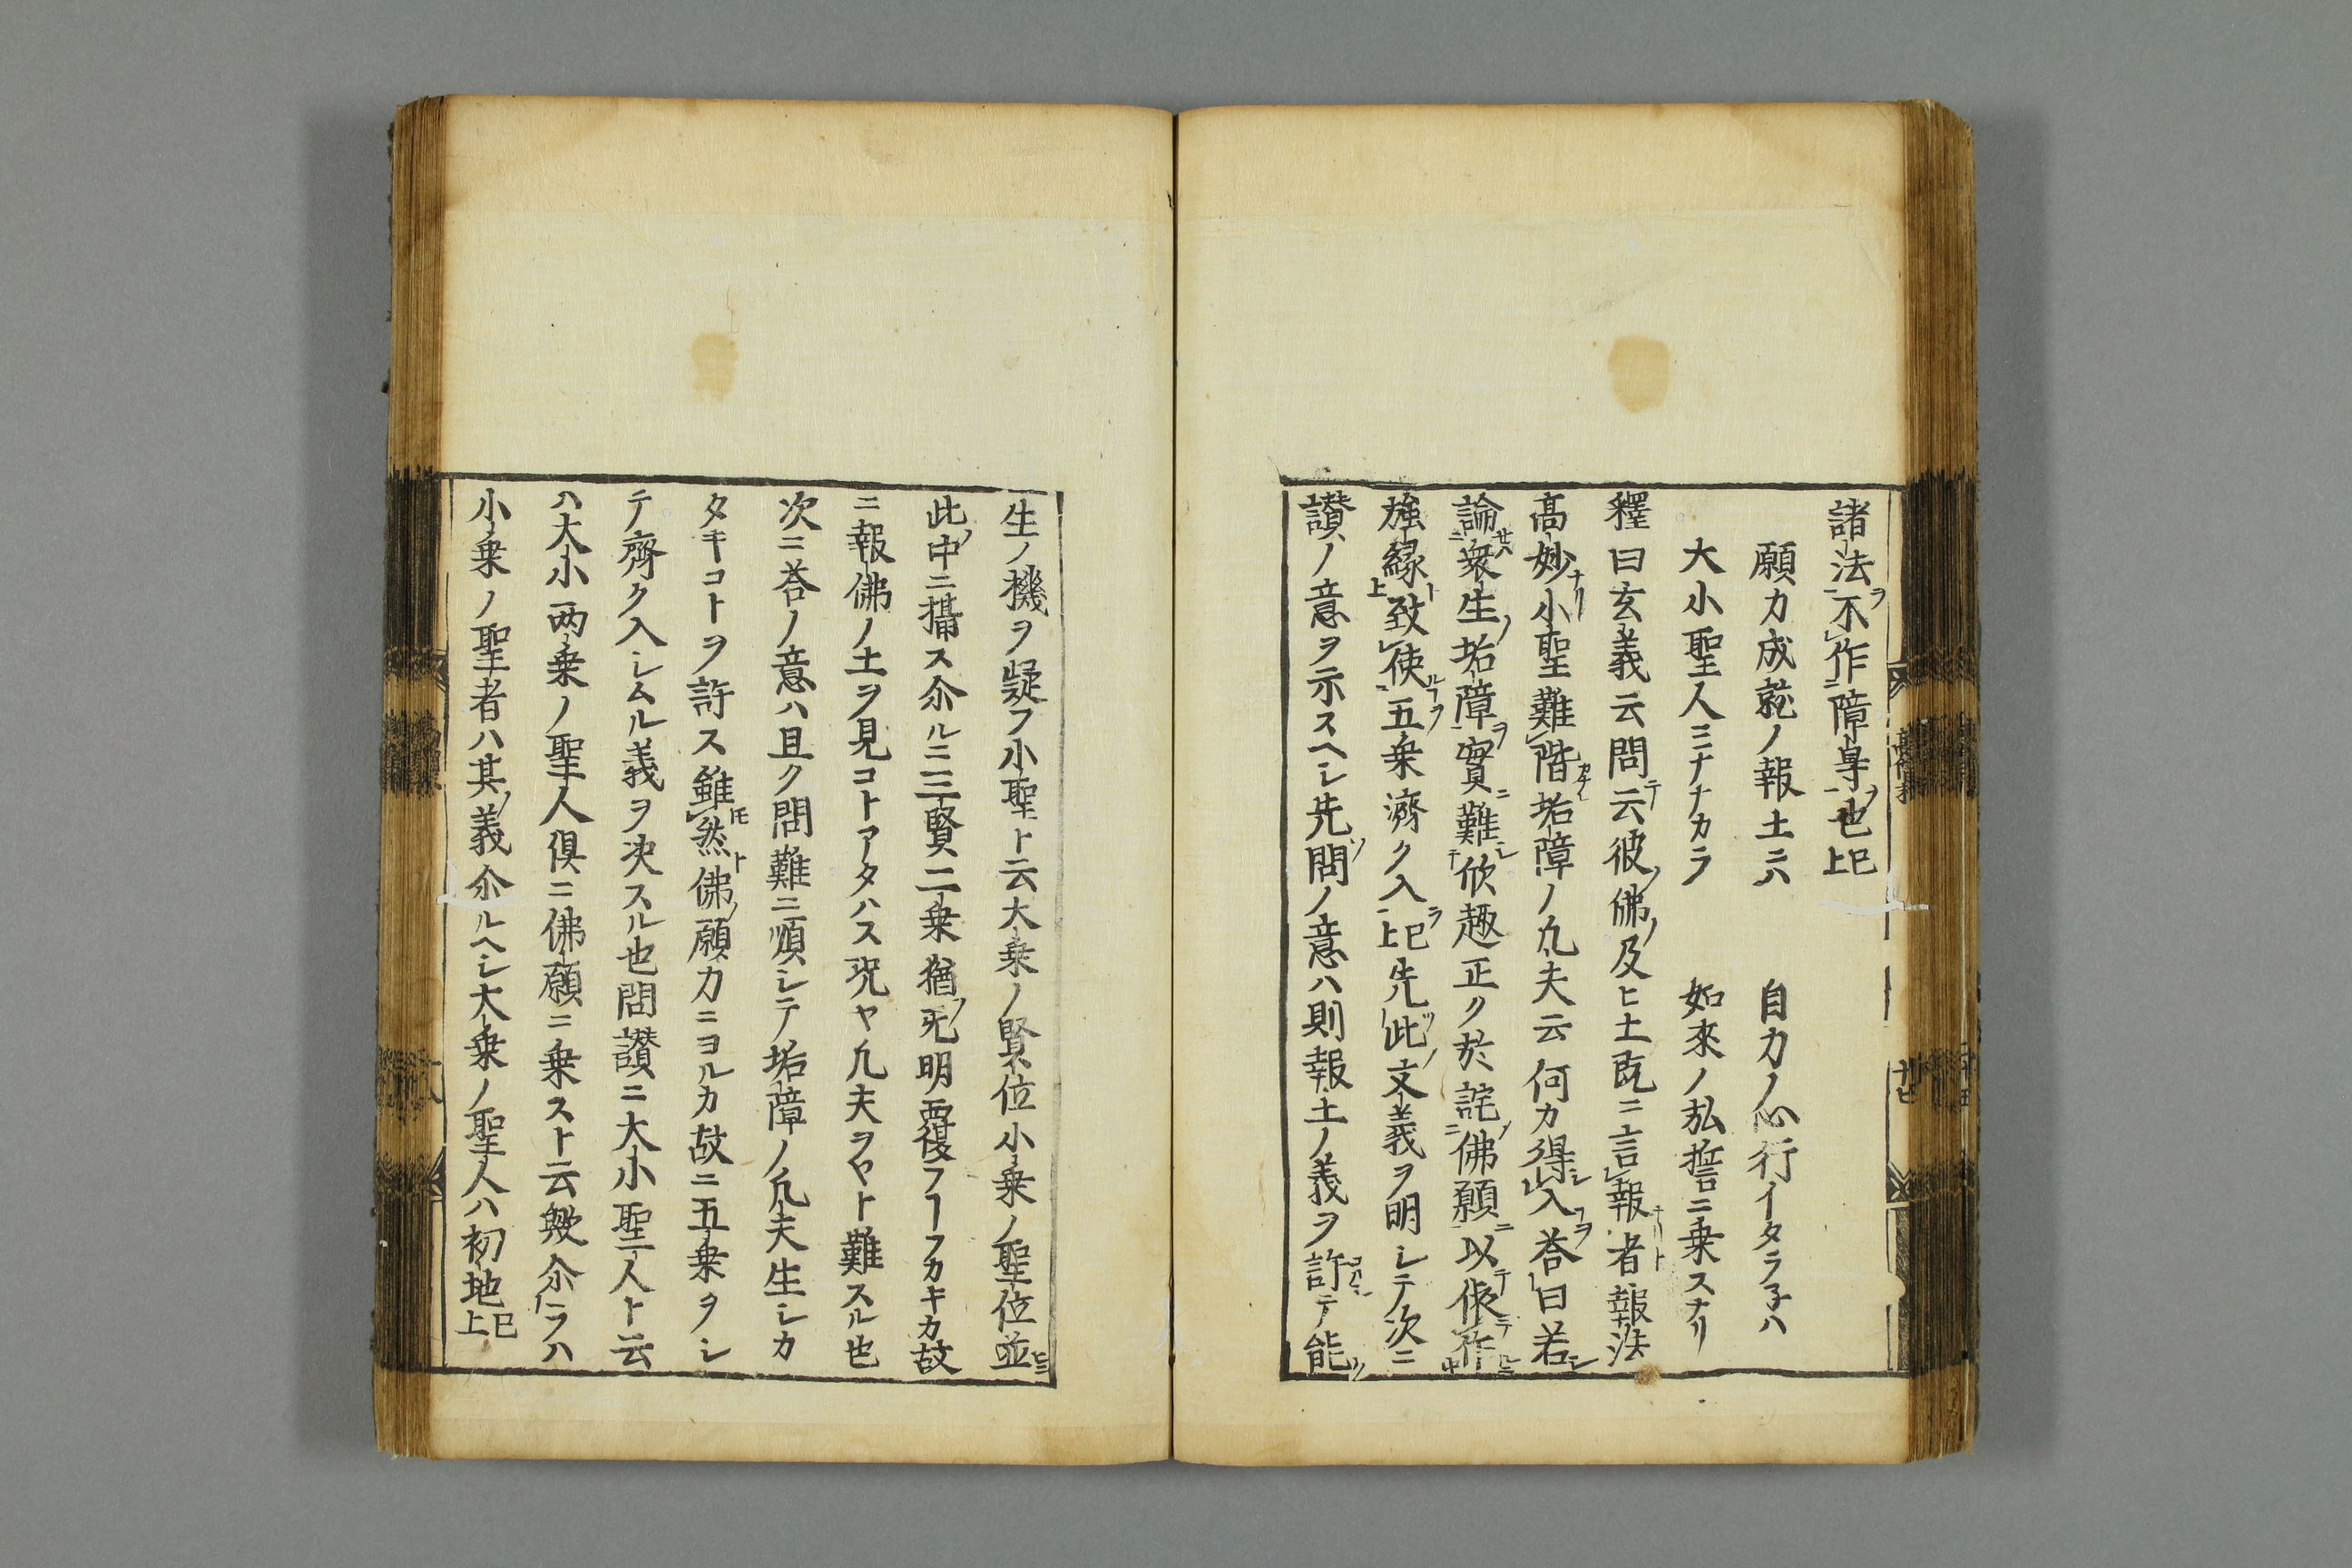 諸法ヲ不作障㝵ヲ也已上
願力成就ノ報土ニハ 自力ノ心行イタラ子ハ
大小聖人ミナナカラ 如來ノ弘誓ニ乗スナリ
釋曰玄義云問テ云彼ノ佛ノ及ヒ土既ニ言報者報法
高妙ナリ小聖難階垢障ノ凢夫云何カ得入答曰若シ
論衆生ノ垢障ヲ實ニ難シ欣趣正ク於託佛願ニ以テ作
強縁ト致使五乗濟ク入已上先ツ此ノ文義ヲ明シテ次ニ
讃ノ意ヲ示スヘシ先ツ問ノ意ハ則報土ノ義ヲ許テ能ツ
生ノ機ヲ疑フ小聖ト云大乗ノ賢位小乗ノ聖位並ニ
此ノ中ニ攝ス尒ルニ三賢二乗猶ヲ无明覆フーフカキカ故
ニ報佛ノ土ヲ見コトアタハス况ヤ凢夫ヲヤト難スル也
次ニ答ノ意ハ且ク問難ニ順シテ垢障ノ凢夫生シカ
タキコトヲ許ス雖然ト佛ノ願力ニヨルカ故ニ五乗ヲシ
テ齊ク入シムル義ヲ决スル也問讃ニ大小聖人ト云
ハ大小两乗ノ聖人倶ニ佛願ニ乗スト云歟尒ラハ
小乗ノ聖者ハ其ノ義尒ルヘシ大乗ノ聖人ハ初地已上